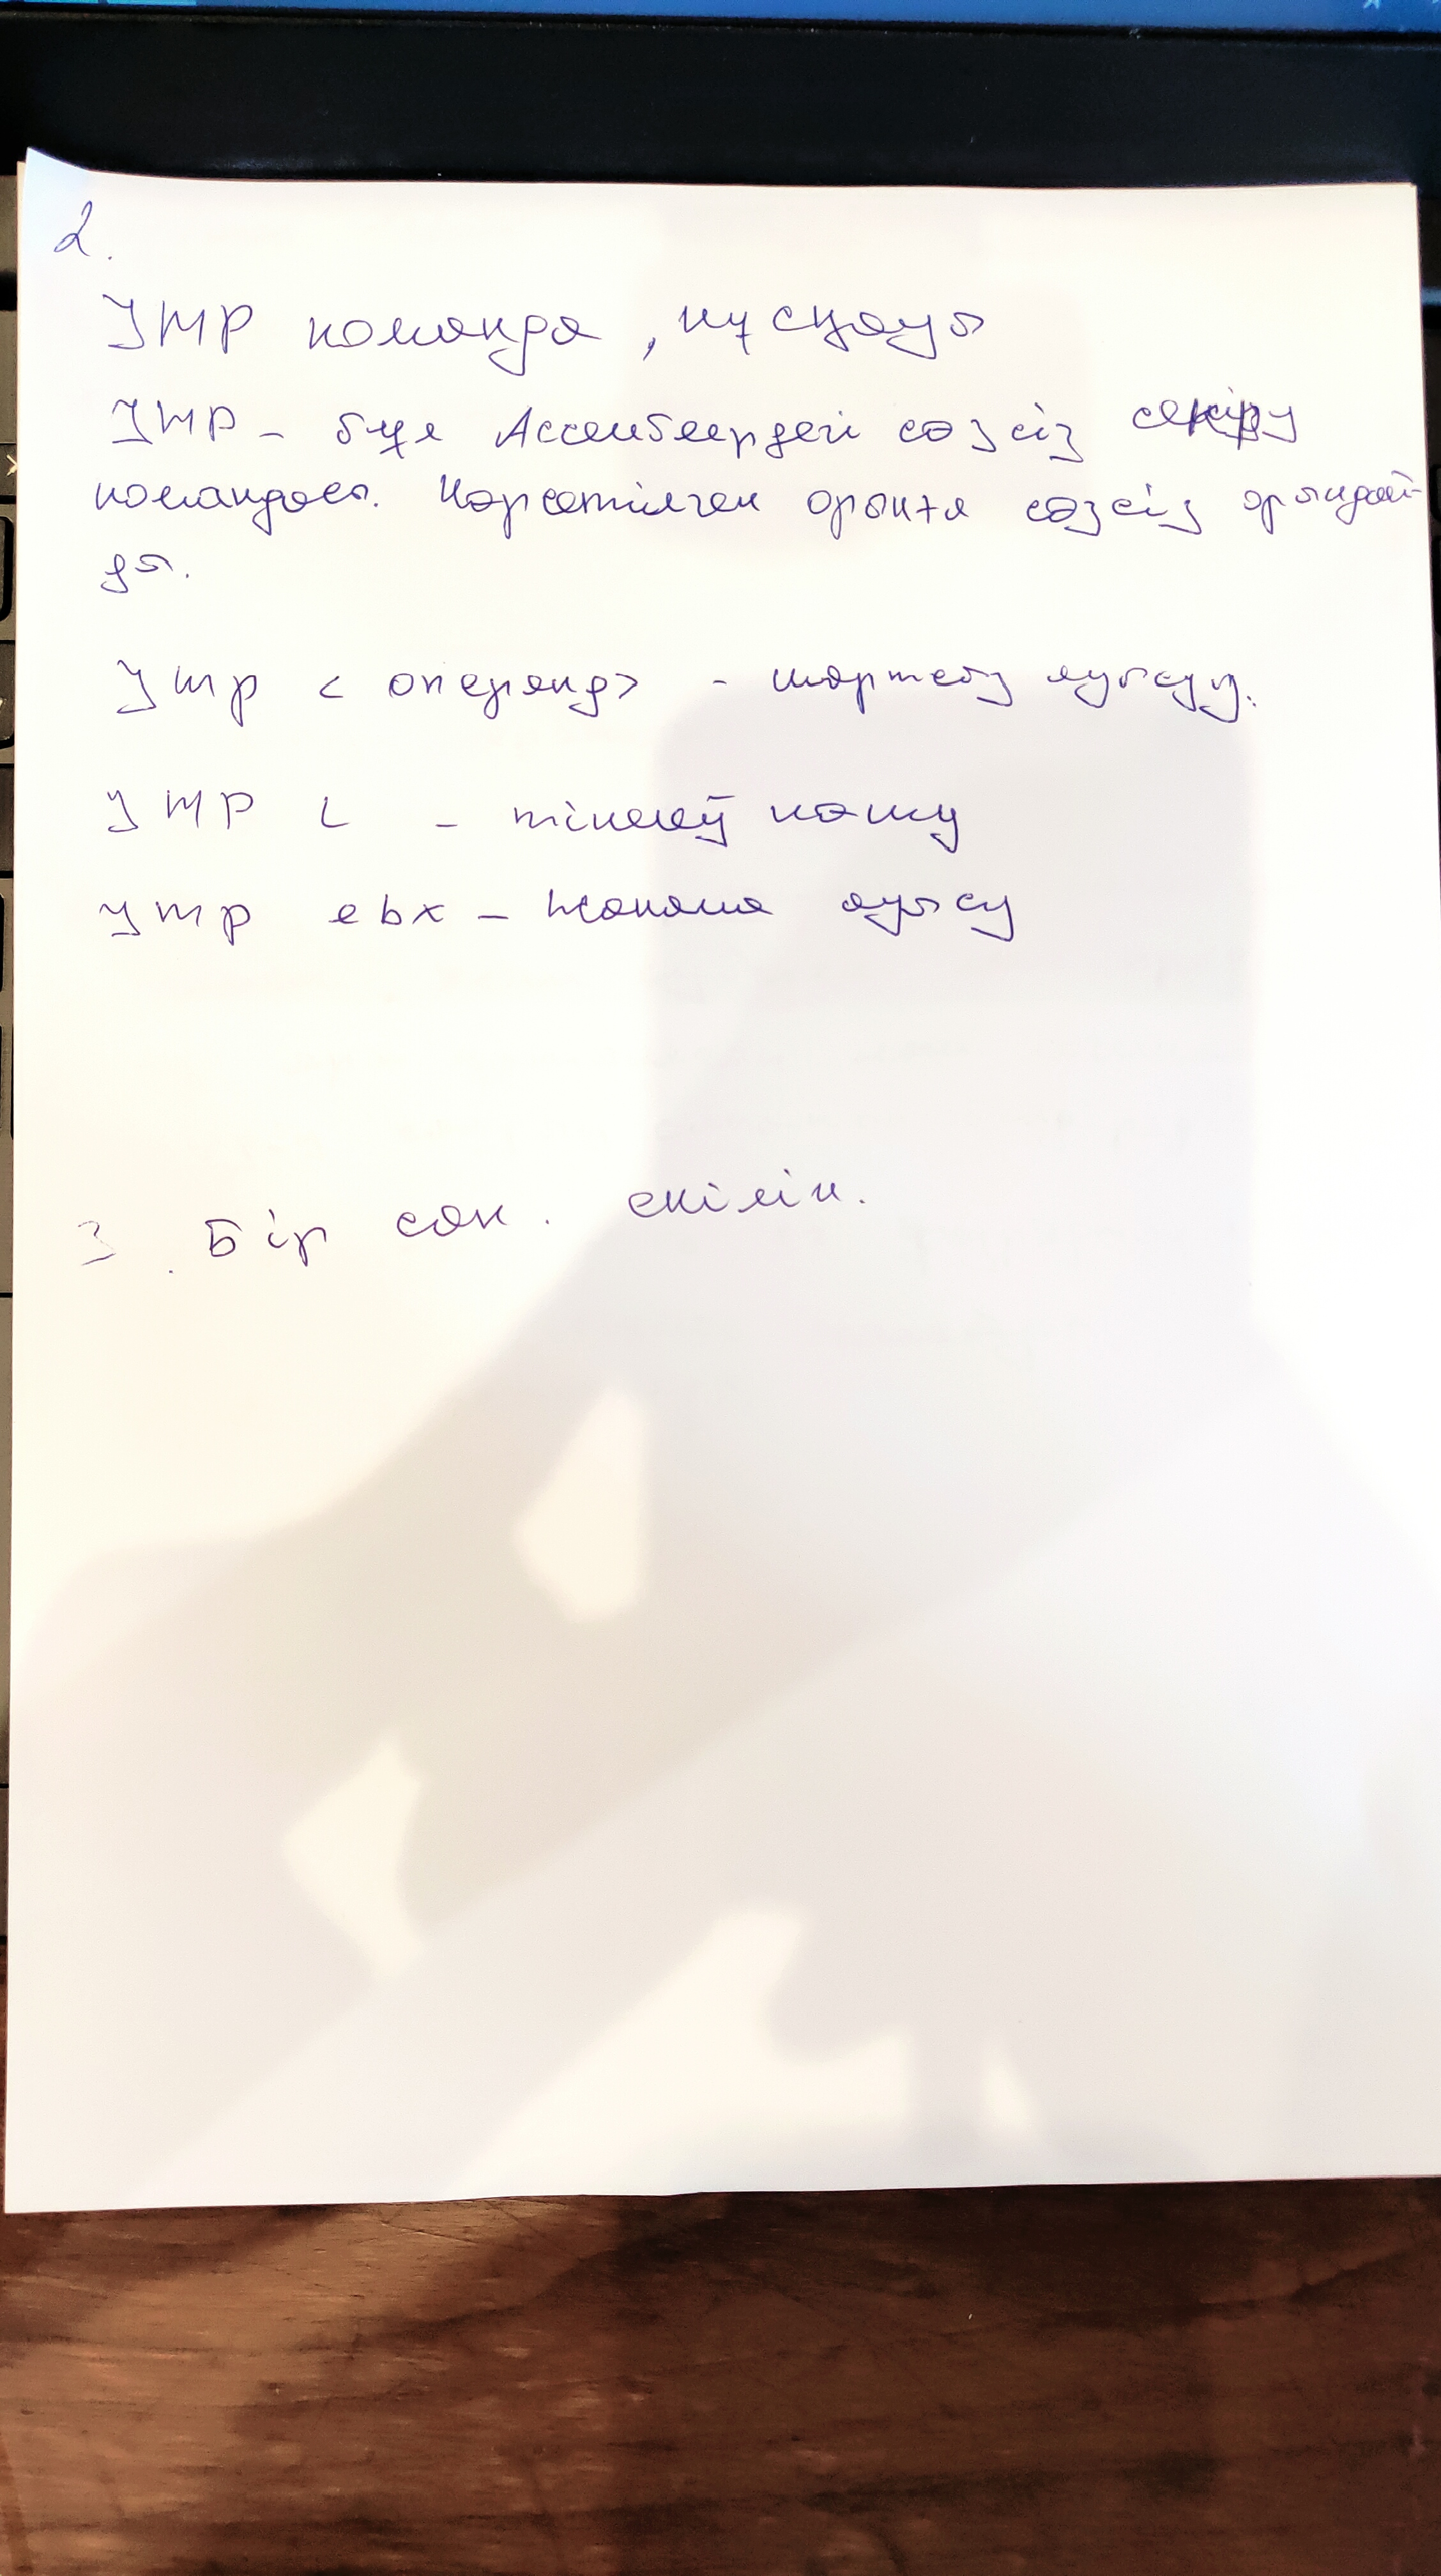 2.
JMP команда, нұсқауы
JMP - бұл Ассемблердегі сөзсіз секіру
командасы. Көрсетілген орынға сөзсіз орындай-
ды.
Jmp < операнд> - шартсыз ауысу.
JMP L - тікелей көшу
Jmp ebx - жанама ауысу
3. Бір сан. екілік.